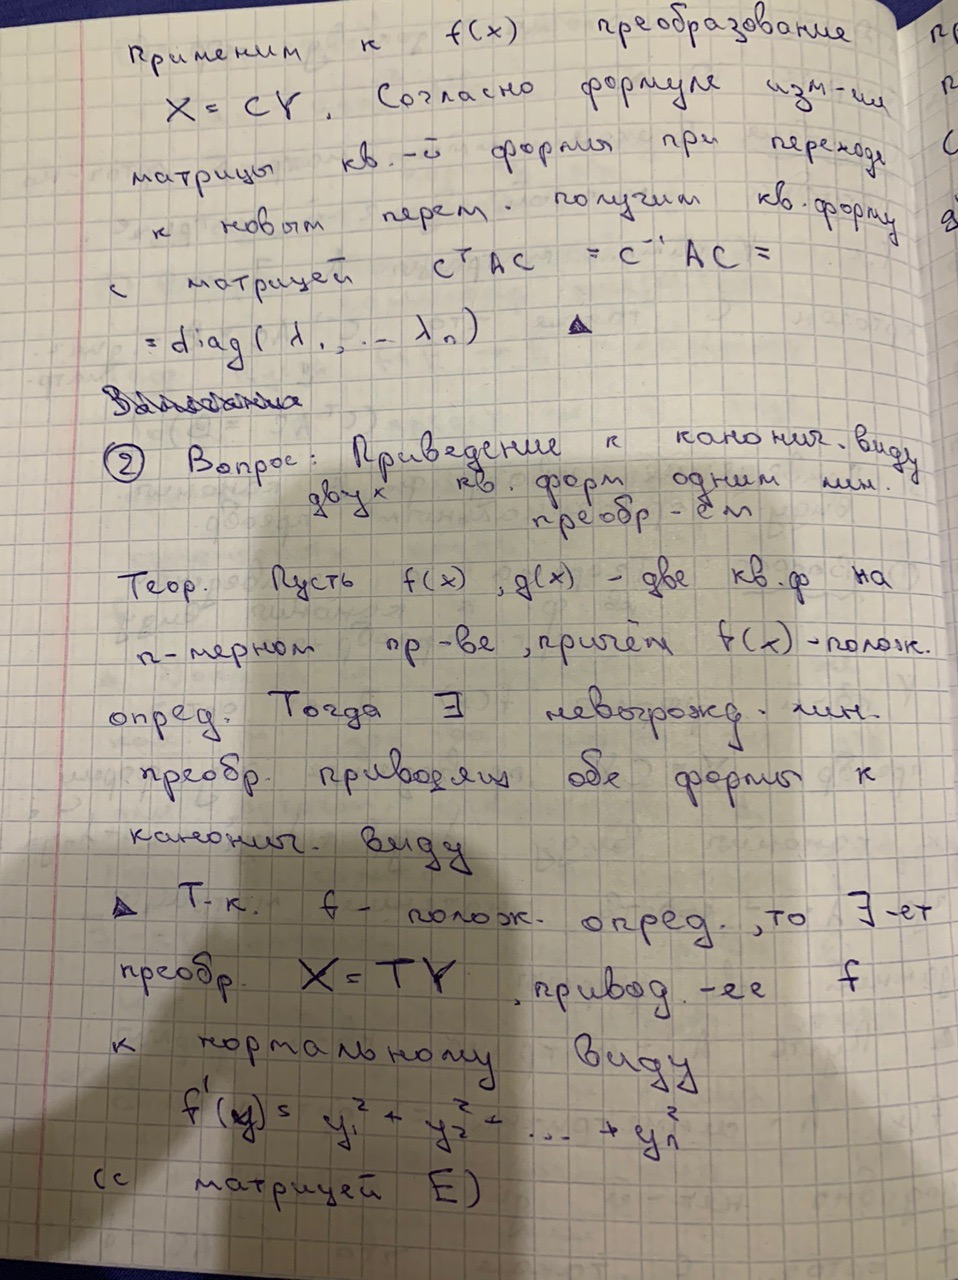 Применим к f(x) преобразование
X = CY. Согласно формуле изм-ия
матрицы кв.-й формы при переходе
к новым перем. получим кв. форму
с матрицей CᵀAC = C⁻¹AC =
= diag(λ₁, ... λₙ) ▲
② Вопрос: Приведение к канонич. виду
двух кв. форм одним лин.
преобр-ем
Теор. Пусть f(x), g(x) - две кв.ф на
n-мерном пр-ве, причём f(x) - полож.
опред. Тогда ∃ невырожд. лин.
преобр. приводящ обе формы к
канонич. виду
▲ Т.к. f - полож. опред., то ∃-ет
преобр. X = TY, привод.-ее f
к нормальному виду
f'(y) = y₁² + y₂² + ... + yₙ²
(с матрицей E)